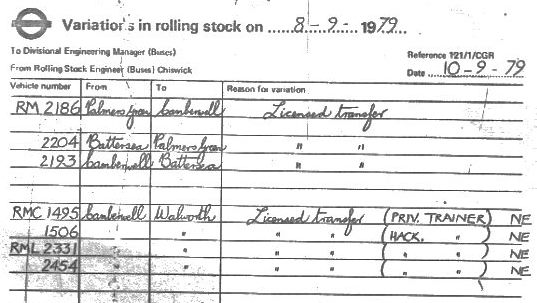 Variations in rolling stock on 8-9-1979
To Divisional Engineering Manager (Buses)
Reference 121/1/CGR
From Rolling Stock Engineer (Buses) Chiswick
Date 10-9-79
Vehicle number From To Reason for variation
RM 2186 Palmers Green Camberwell Licensed transfer
2204 Battersea Palmers Green " "
2193 Camberwell Battersea " "
RMC 1495 Camberwell Walworth Licensed transfer (PRIV. TRAINER) NE
1506 " " " " (HACK. " ) NE
RML 2331 " " " " ( " " ) NE
2454 " " " " ( " " ) NE